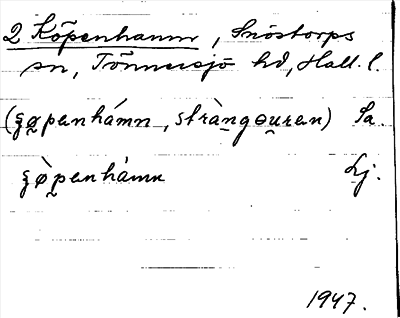 2 Köpenhamn, Snöstorps
sn, Tönnersjö hd, Hall. l.
(ʒøpenhámn, stràngɵuren) Sa.
ʒø̀penhámn Lj.
1947.